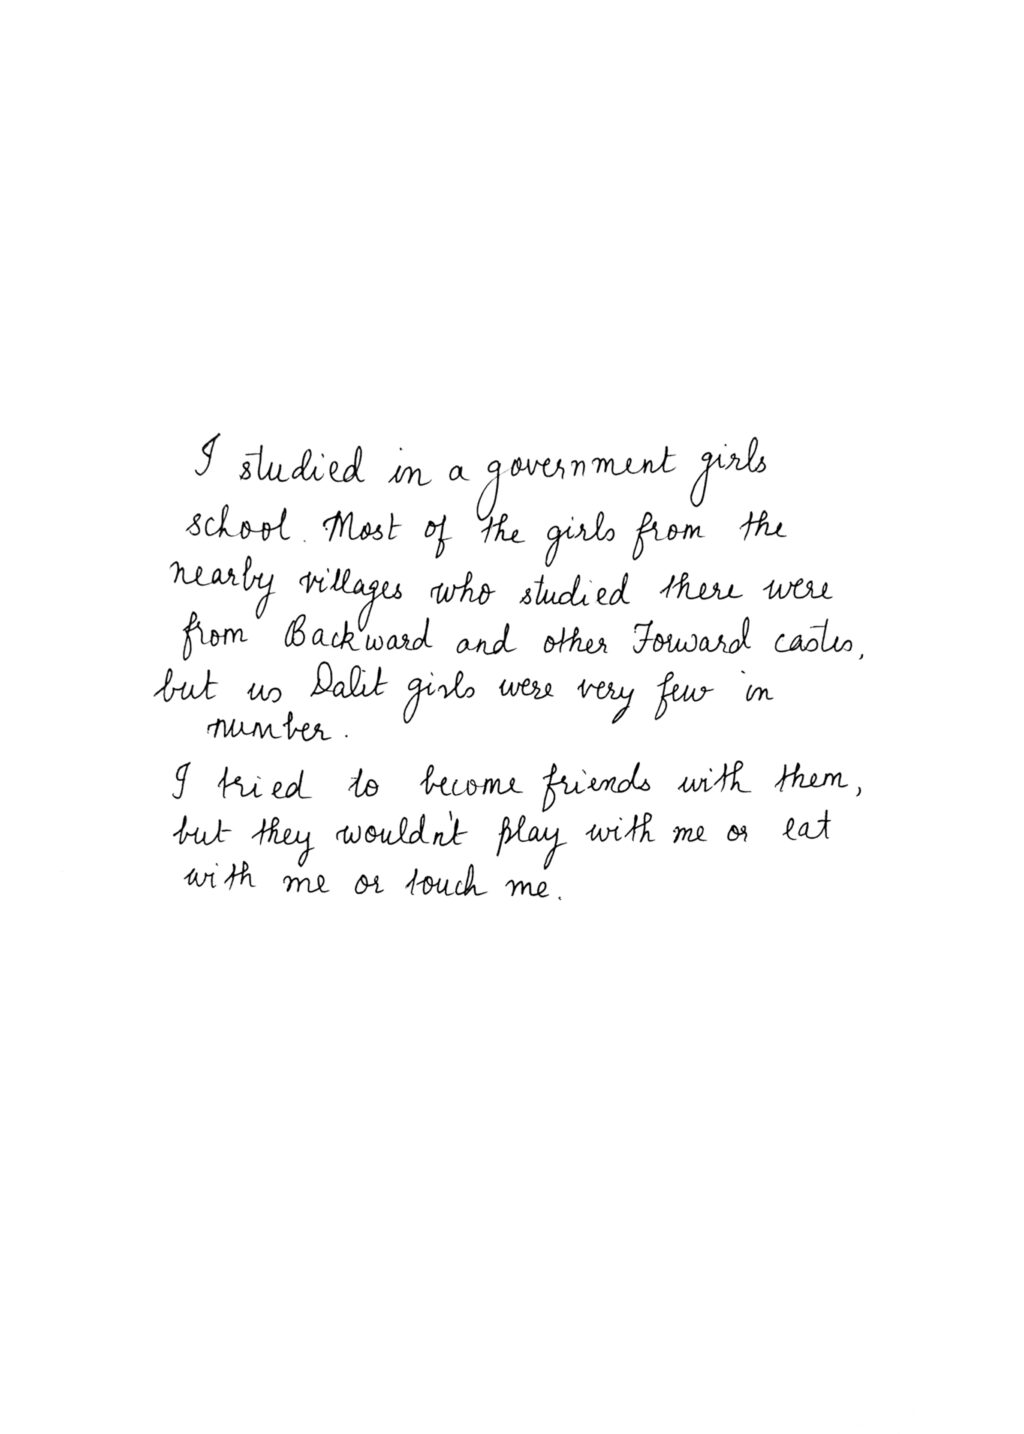 I studied in a government girls
school. Most of the girls from the
nearby villages who studied there were
from Backward and other Forward castes,
but us Dalit girls were very few in
number.
I tried to become friends with them,
but they wouldn't play with me or eat
with me or touch me.